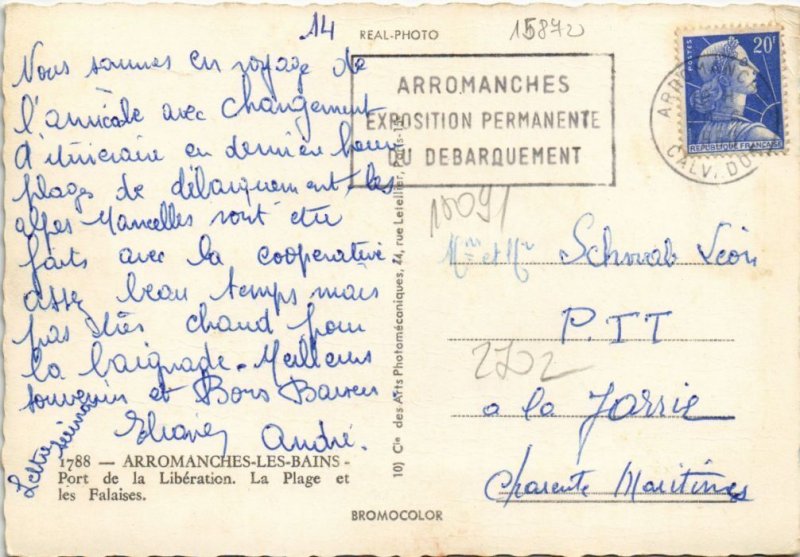 14
REAL-PHOTO
15872
Nous sommes en voyage de
l'amicale avec changement
d'itineraire en dernière heure
plages de débarquement, les
alpes Mancelles sont etre
faits avec la cooperative
assez beau temps mais
pas très chaud pour
la baignade. Meilleurs
souvenirs et Bons Baisers
André.
Lettre
1788 — ARROMANCHES-LES-BAINS -
Port de la Libération. La Plage et
les Falaises.
10) Cie des Arts Photomécaniques, 44, rue Letellier, Paris-15
BROMOCOLOR
ARROMANCHES
EXPOSITION PERMANENTE
DU DEBARQUEMENT
POSTES
20F
REPUBLIQUE FRANÇAISE
ARROMANCH
CALVADOS
10091
Mme et Mr Schwab Léon
PTT
2702
a la Jarrie
Charente Maritimes